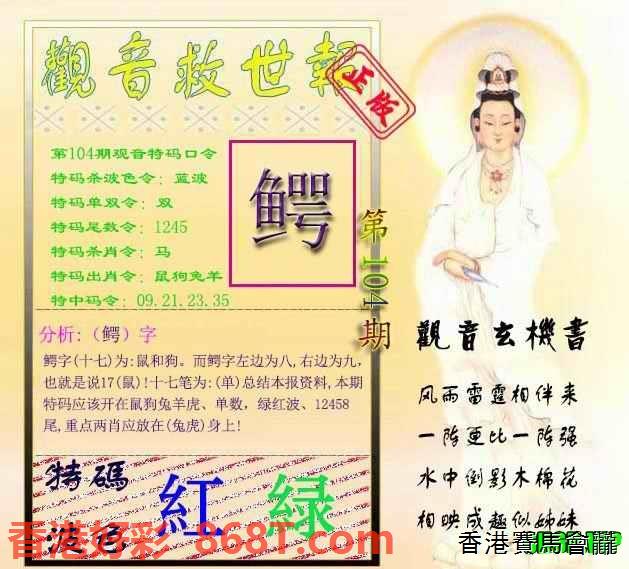 觀音救世報
正版
第104期观音特码口令
特码杀波色令：蓝波
特码单双令：双
特码尾数令：1245
特码杀肖令：马
特码出肖令：鼠狗兔羊
特中码令：09.21.23.35
鳄
第104期
分析:（鳄）字
鳄字(十七)为:鼠和狗。而鳄字左边为八,右边为九,
也就是说17(鼠)!十七笔为:(单)总结本报资料,本期
特码应该开在鼠狗兔羊虎、单数，绿红波、12458
尾,重点两肖应放在(兔虎)身上!
特碼
波色
紅 绿
香港好彩 868T.com
觀音玄機書
风雨雷霆相伴来
一阵更比一阵强
水中倒影木棉花
相映成趣似姊妹
香港賽馬會